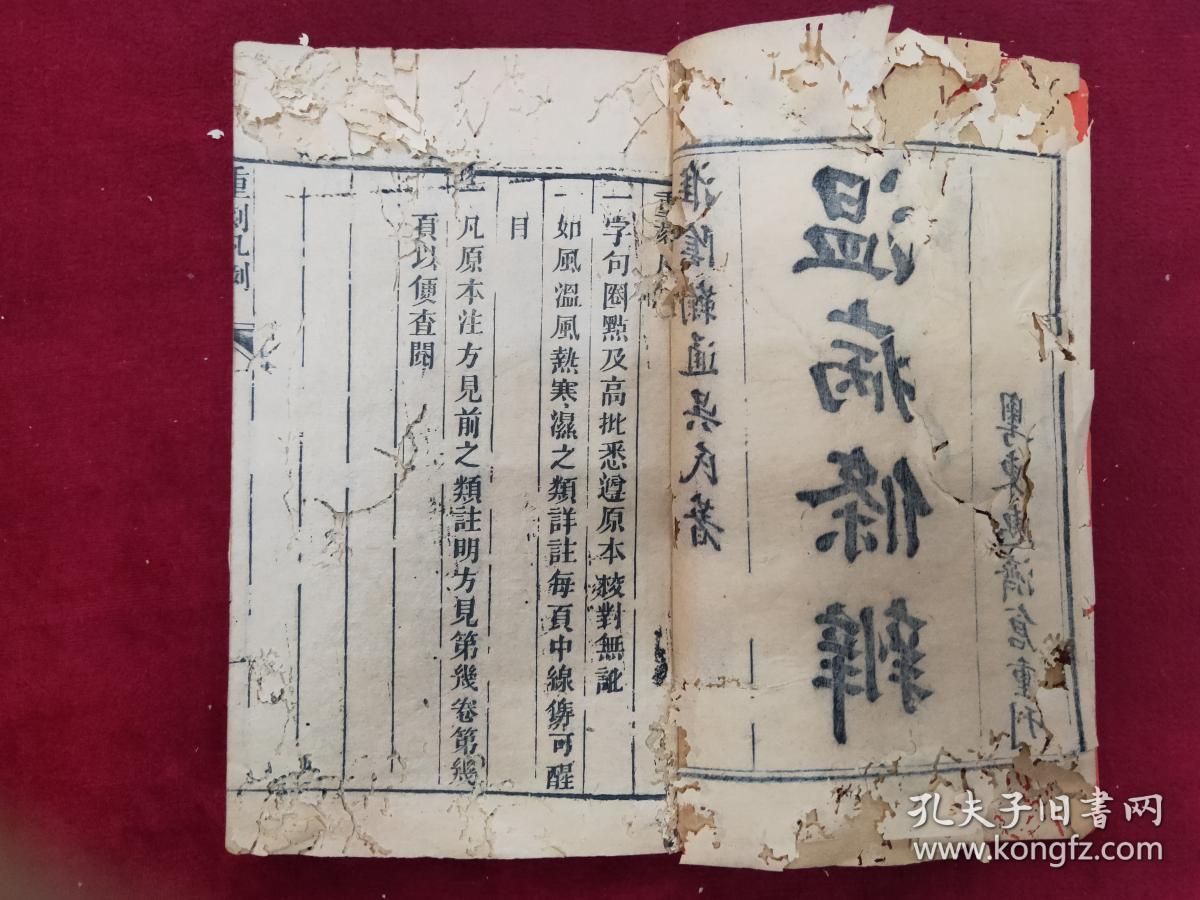 粵東惠濟倉重刊
溫病條辨
淮陰鞠通吳氏著
重刻凡例
一字句圈點及高批悉遵原本挍對無訛
一如風溫風熱寒濕之類詳註每頁中線傍可醒
目
一凡原本注方見前之類註明方見第幾卷第幾
頁以便查閱
重刻凡例
孔夫子旧书网
www.kongfz.com